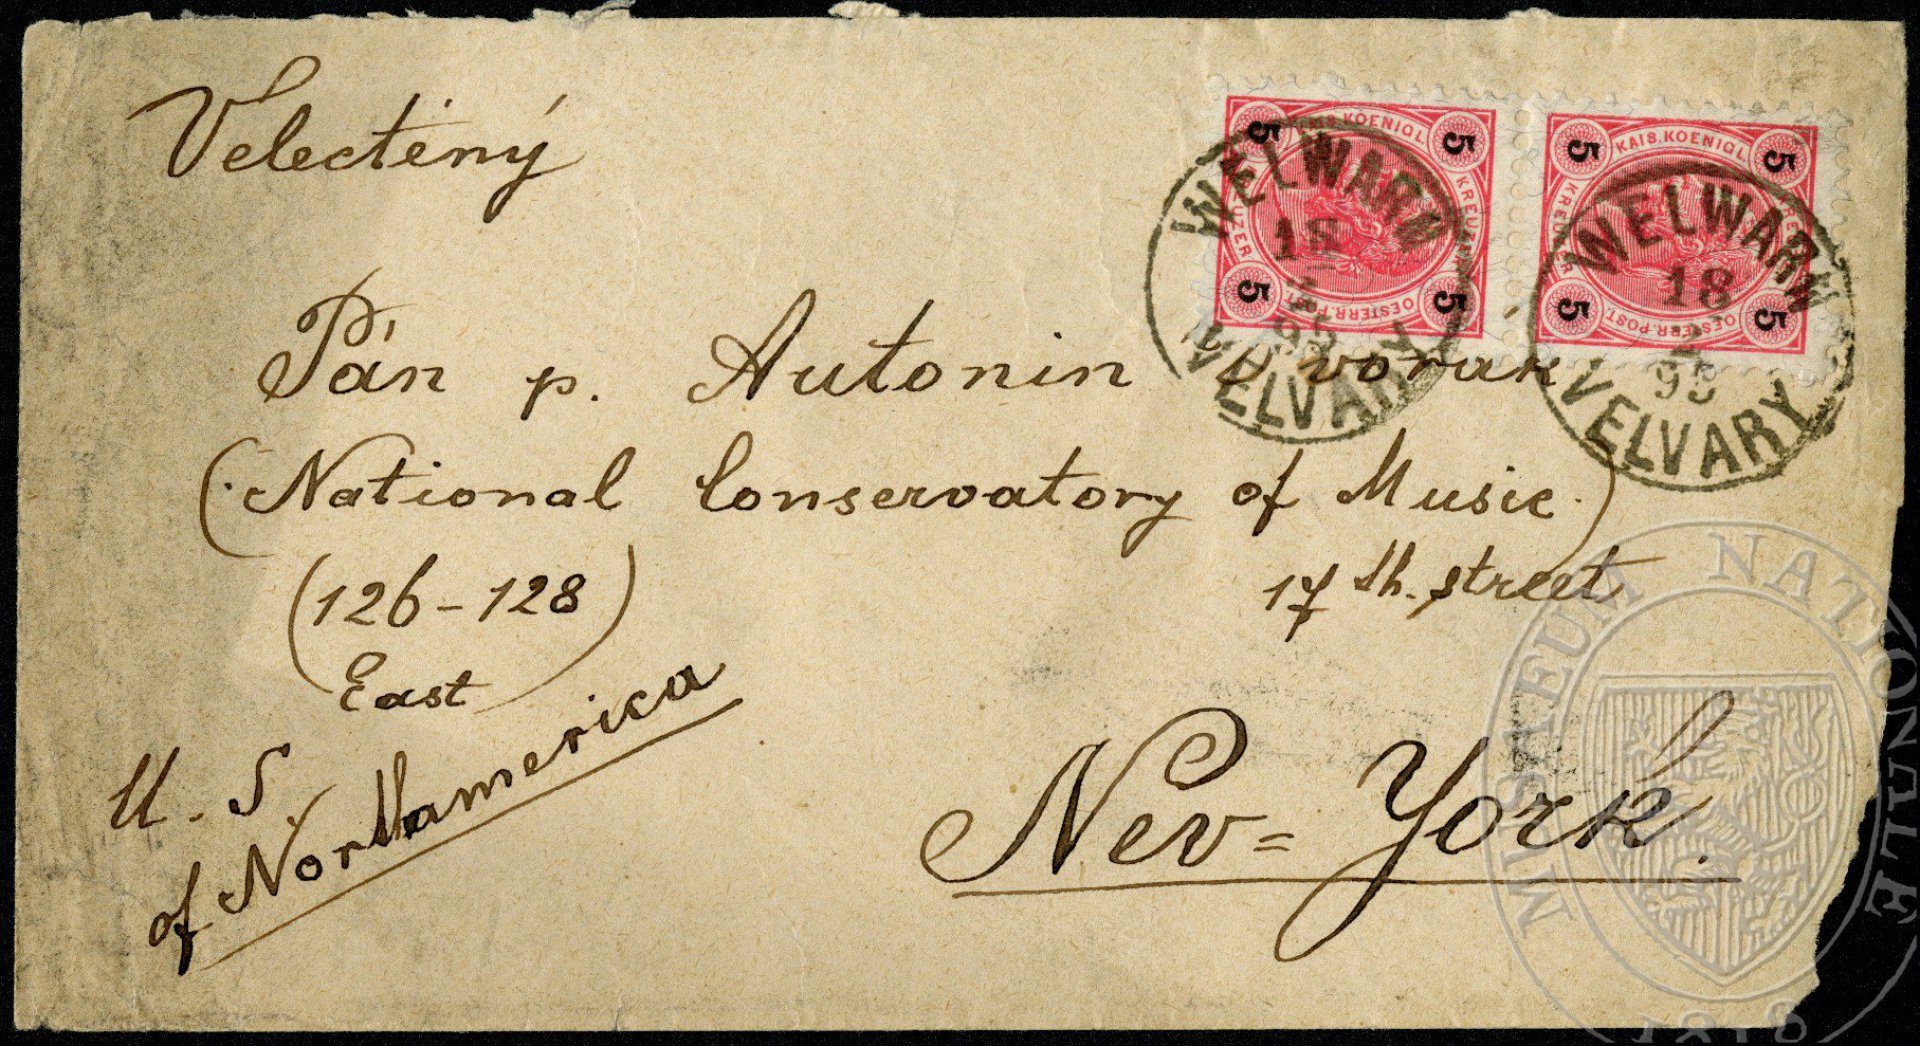 Velectěný
Pán p. Antonin Dvořák
(National Conservatory of Music.)
(126-128)
17th. street
East
U. S.
of Northamerica
Nev=York.
5 KAIS. KOENIGL. 5
KREUZER KREUZER
5 OESTERR. POST. 5
5 KAIS. KOENIGL. 5
KREUZER KREUZER
5 OESTERR. POST. 5
WELWARN
18
95
VELVARY
WELWARN
18
95
VELVARY
MUSAEUM NATIONALE
1818